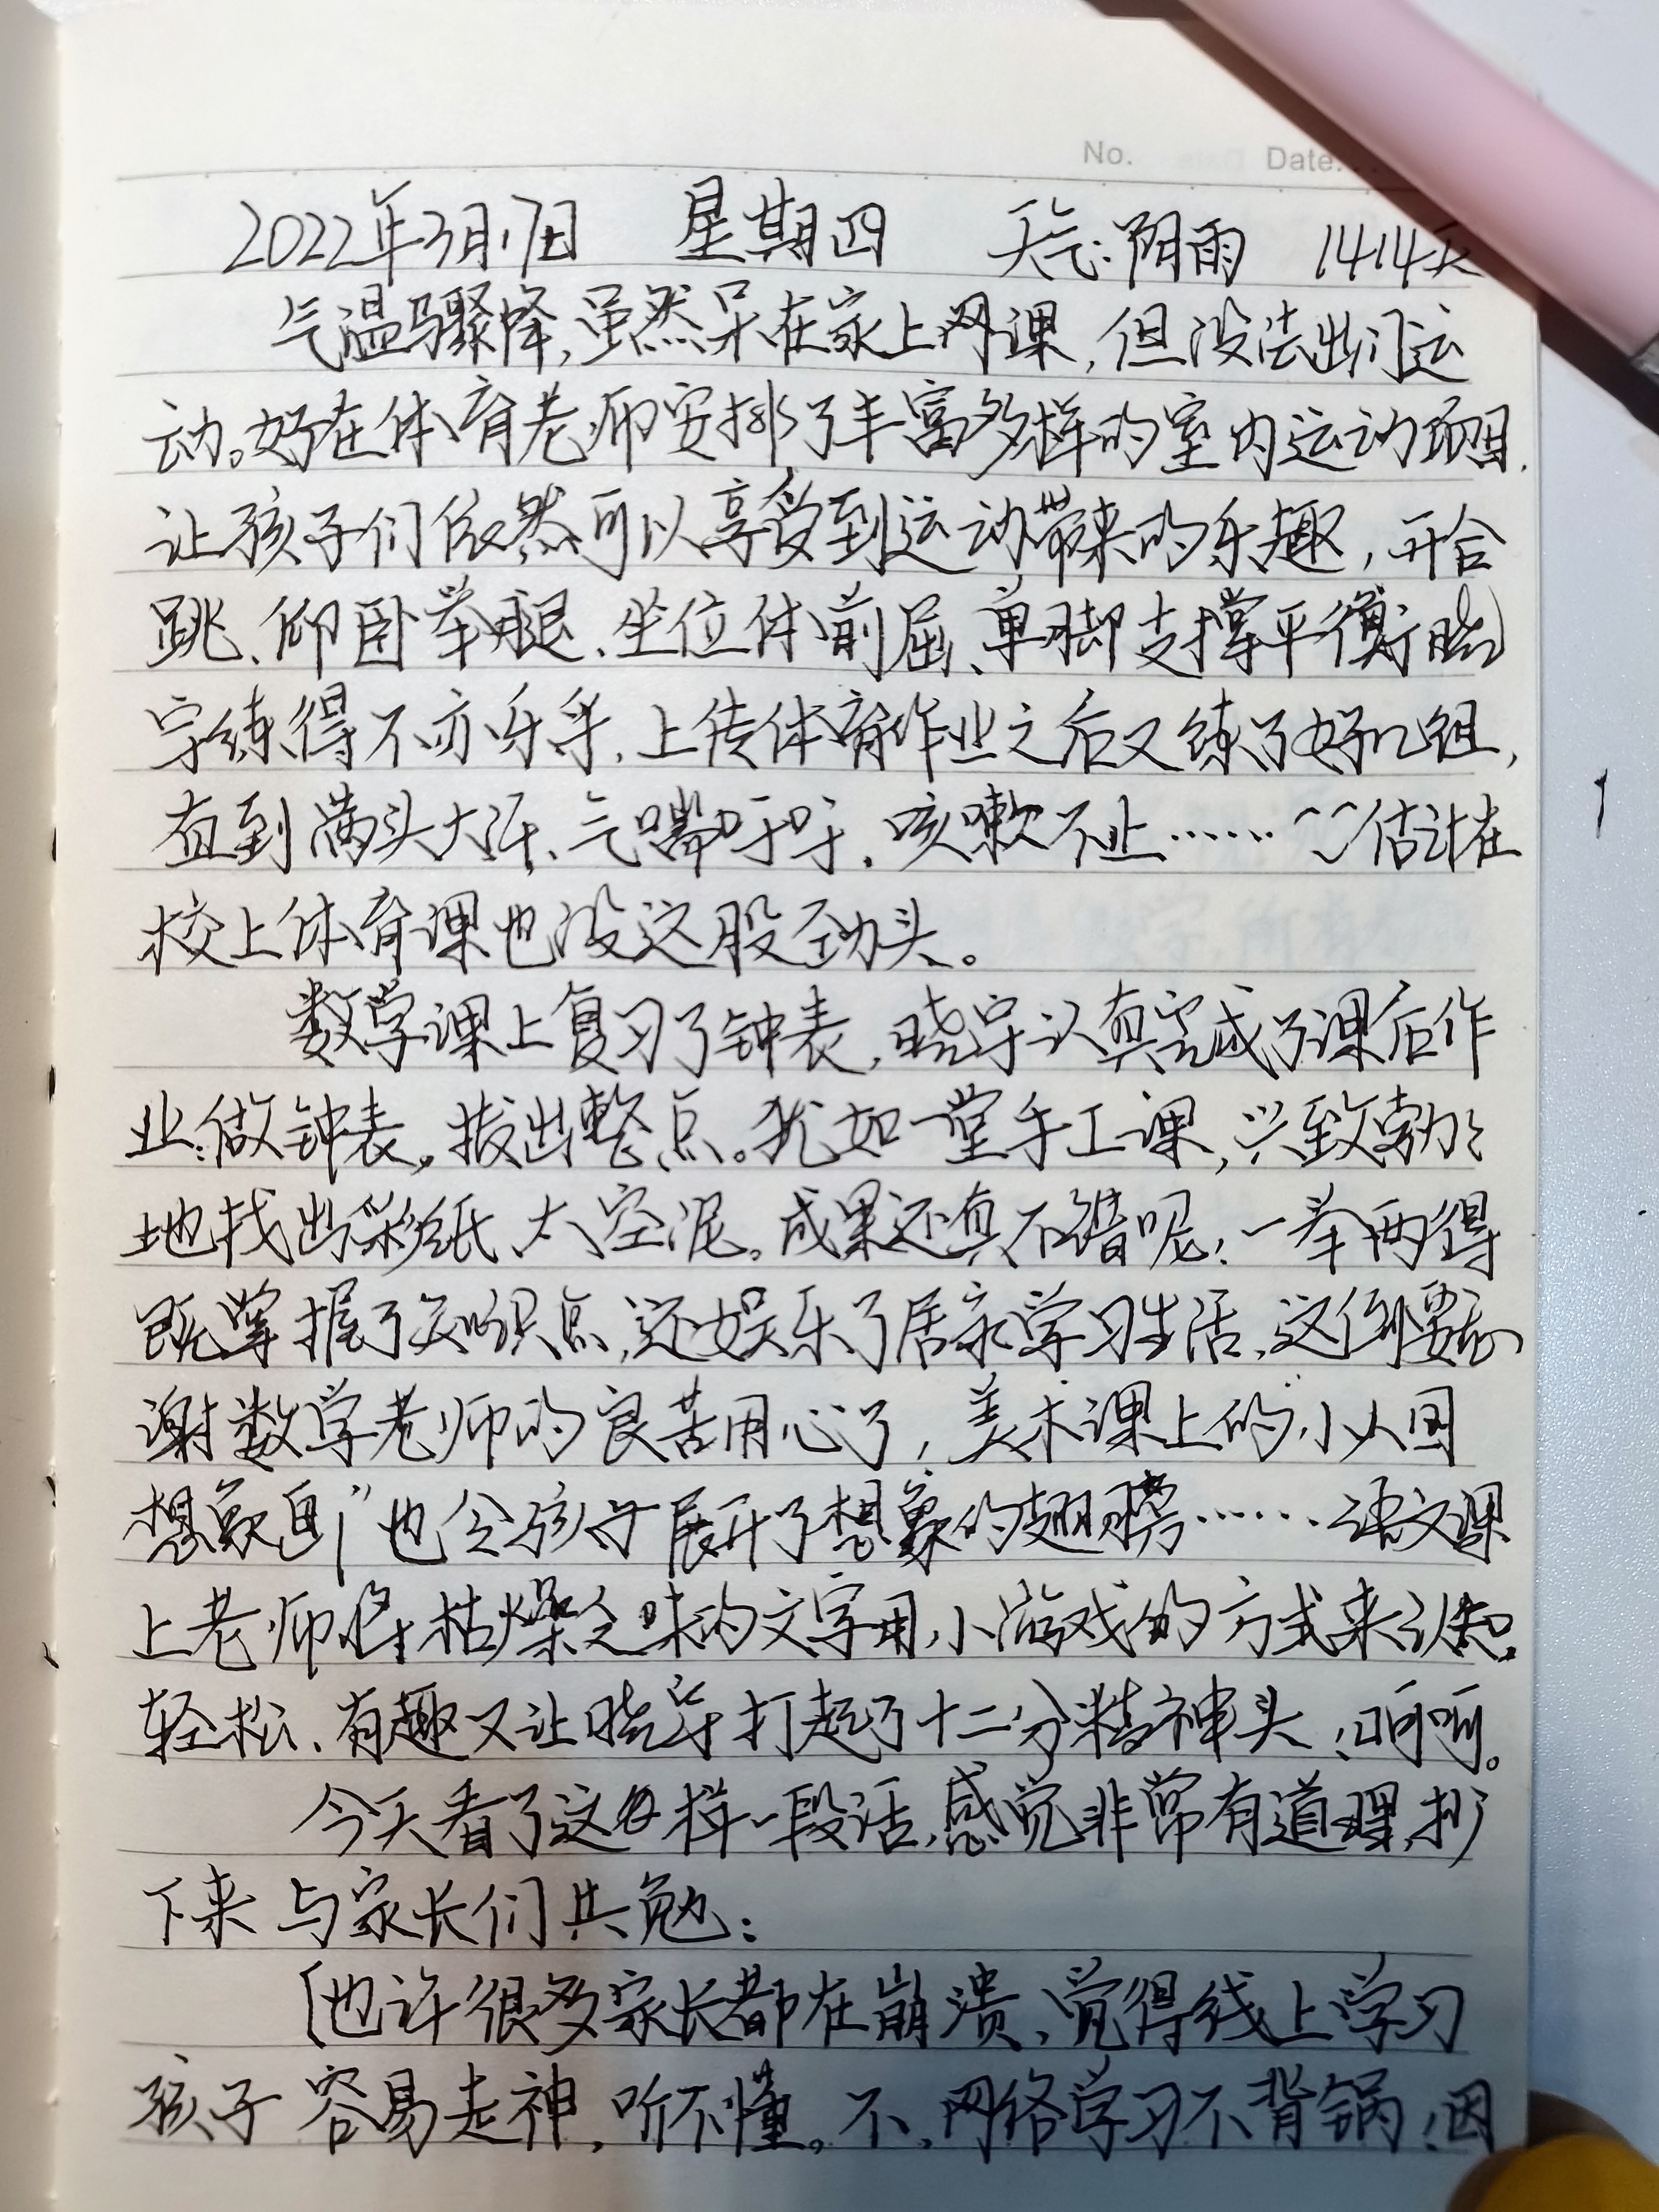 No. Date:
2022年3月17日 星期四 天气:阴雨 1414天
气温骤降,虽然呆在家上网课,但没法出门运
动。好在体育老师安排了丰富多样的室内运动项目,
让孩子们依然可以享受到运动带来的乐趣,开合
跳、仰卧举腿、坐位体前屈、单脚支撑平衡,晓
宇练得不亦乐乎,上传体育作业之后又练了好几组,
直到满头大汗、气喘吁吁,咳嗽不止……~~估计在
校上体育课也没这股劲头。
数学课上复习了钟表,晓宇认真完成了课后作
业:做钟表,拔出整点。犹如一堂手工课,兴致勃勃
地找出彩纸、太空泥。成果还真不错呢!一举两得
既掌握了知识点,还娱乐了居家学习生活,这倒要感
谢数学老师的良苦用心了,美术课上的“小人国
想象画”也令孩子展开了想象的翅膀……语文课
上老师将枯燥乏味的文字用小游戏的方式来认知,
轻松、有趣又让晓宇打起了十二分精神头,呵呵。
今天看了这样一段话,感觉非常有道理,抄
下来与家长们共勉:
[也许很多家长都在崩溃,觉得线上学习
孩子容易走神,听不懂。不,网络学习不背锅!因